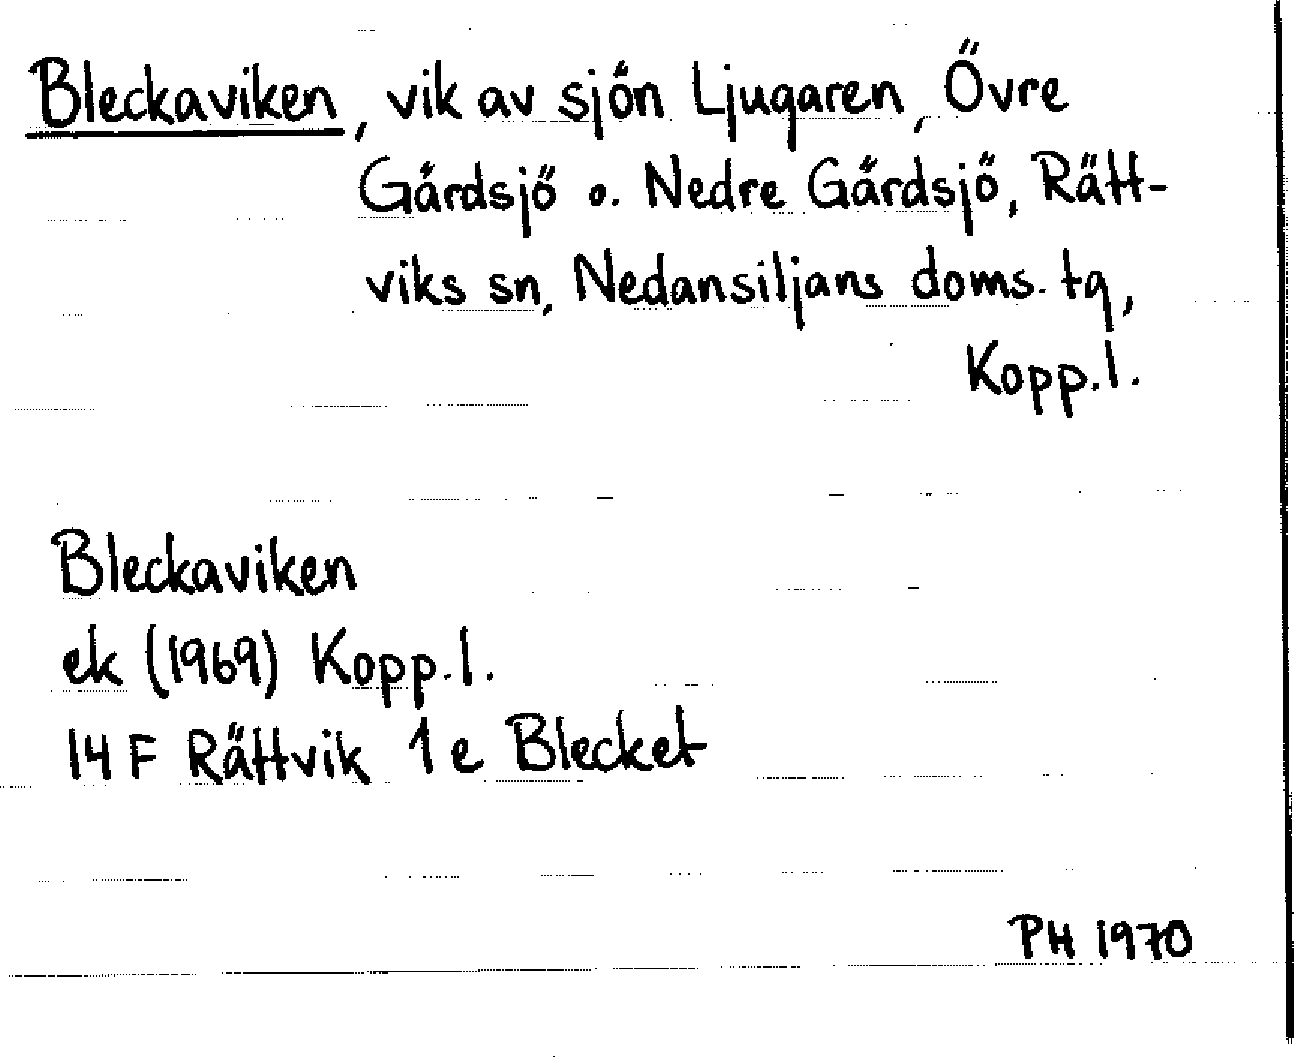 Bleckaviken, vik av sjön Ljugaren, Övre
Gärdsjö o. Nedre Gärdsjö, Rätt-
viks sn, Nedansiljans doms. tg,
Kopp. l.
Bleckaviken
ek (1969) Kopp. l.
14 F Rättvik 1 e Blecket
PH 1970